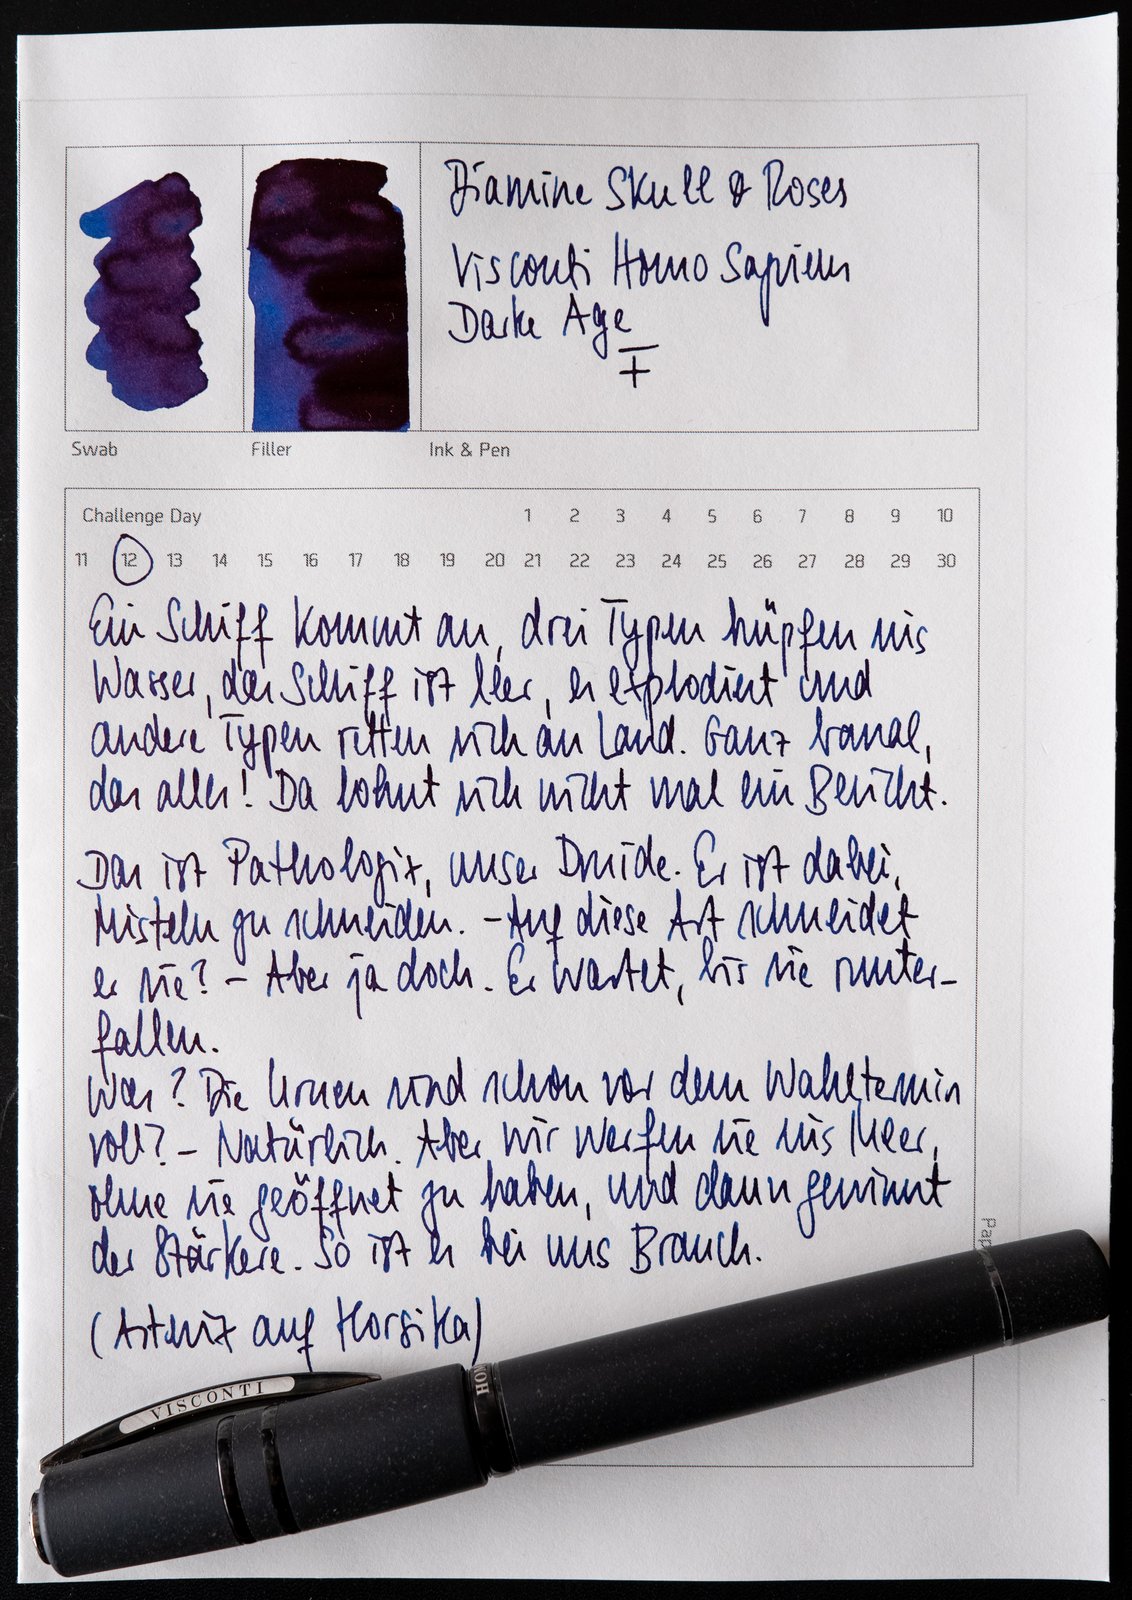 Diamine Skull & Roses
Visconti Homo Sapiens
Dark Age
F
Swab Filler Ink & Pen
Challenge Day 1 2 3 4 5 6 7 8 9 10
11 12 13 14 15 16 17 18 19 20 21 22 23 24 25 26 27 28 29 30
Ein Schiff kommt an, drei Typen hüpfen ins
Wasser, das Schiff ist leer, es explodiert und
andere Typen retten sich an Land. Ganz banal,
das alles! Da lohnt sich nicht mal ein Bericht.
Das ist Pathologix, unser Druide. Er ist dabei,
Misteln zu schneiden. - Auf diese Art schneidet
er sie? - Aber ja doch. Er wartet, bis sie runter-
fallen.
Was? Die Urnen sind schon vor dem Wahltermin
voll? - Natürlich. Aber wir werfen sie ins Meer,
ohne sie geöffnet zu haben, und dann gewinnt
der Stärkere. So ist es bei uns Brauch.
(Asterix auf Korsika)
Pap
VISCONTI
HOM